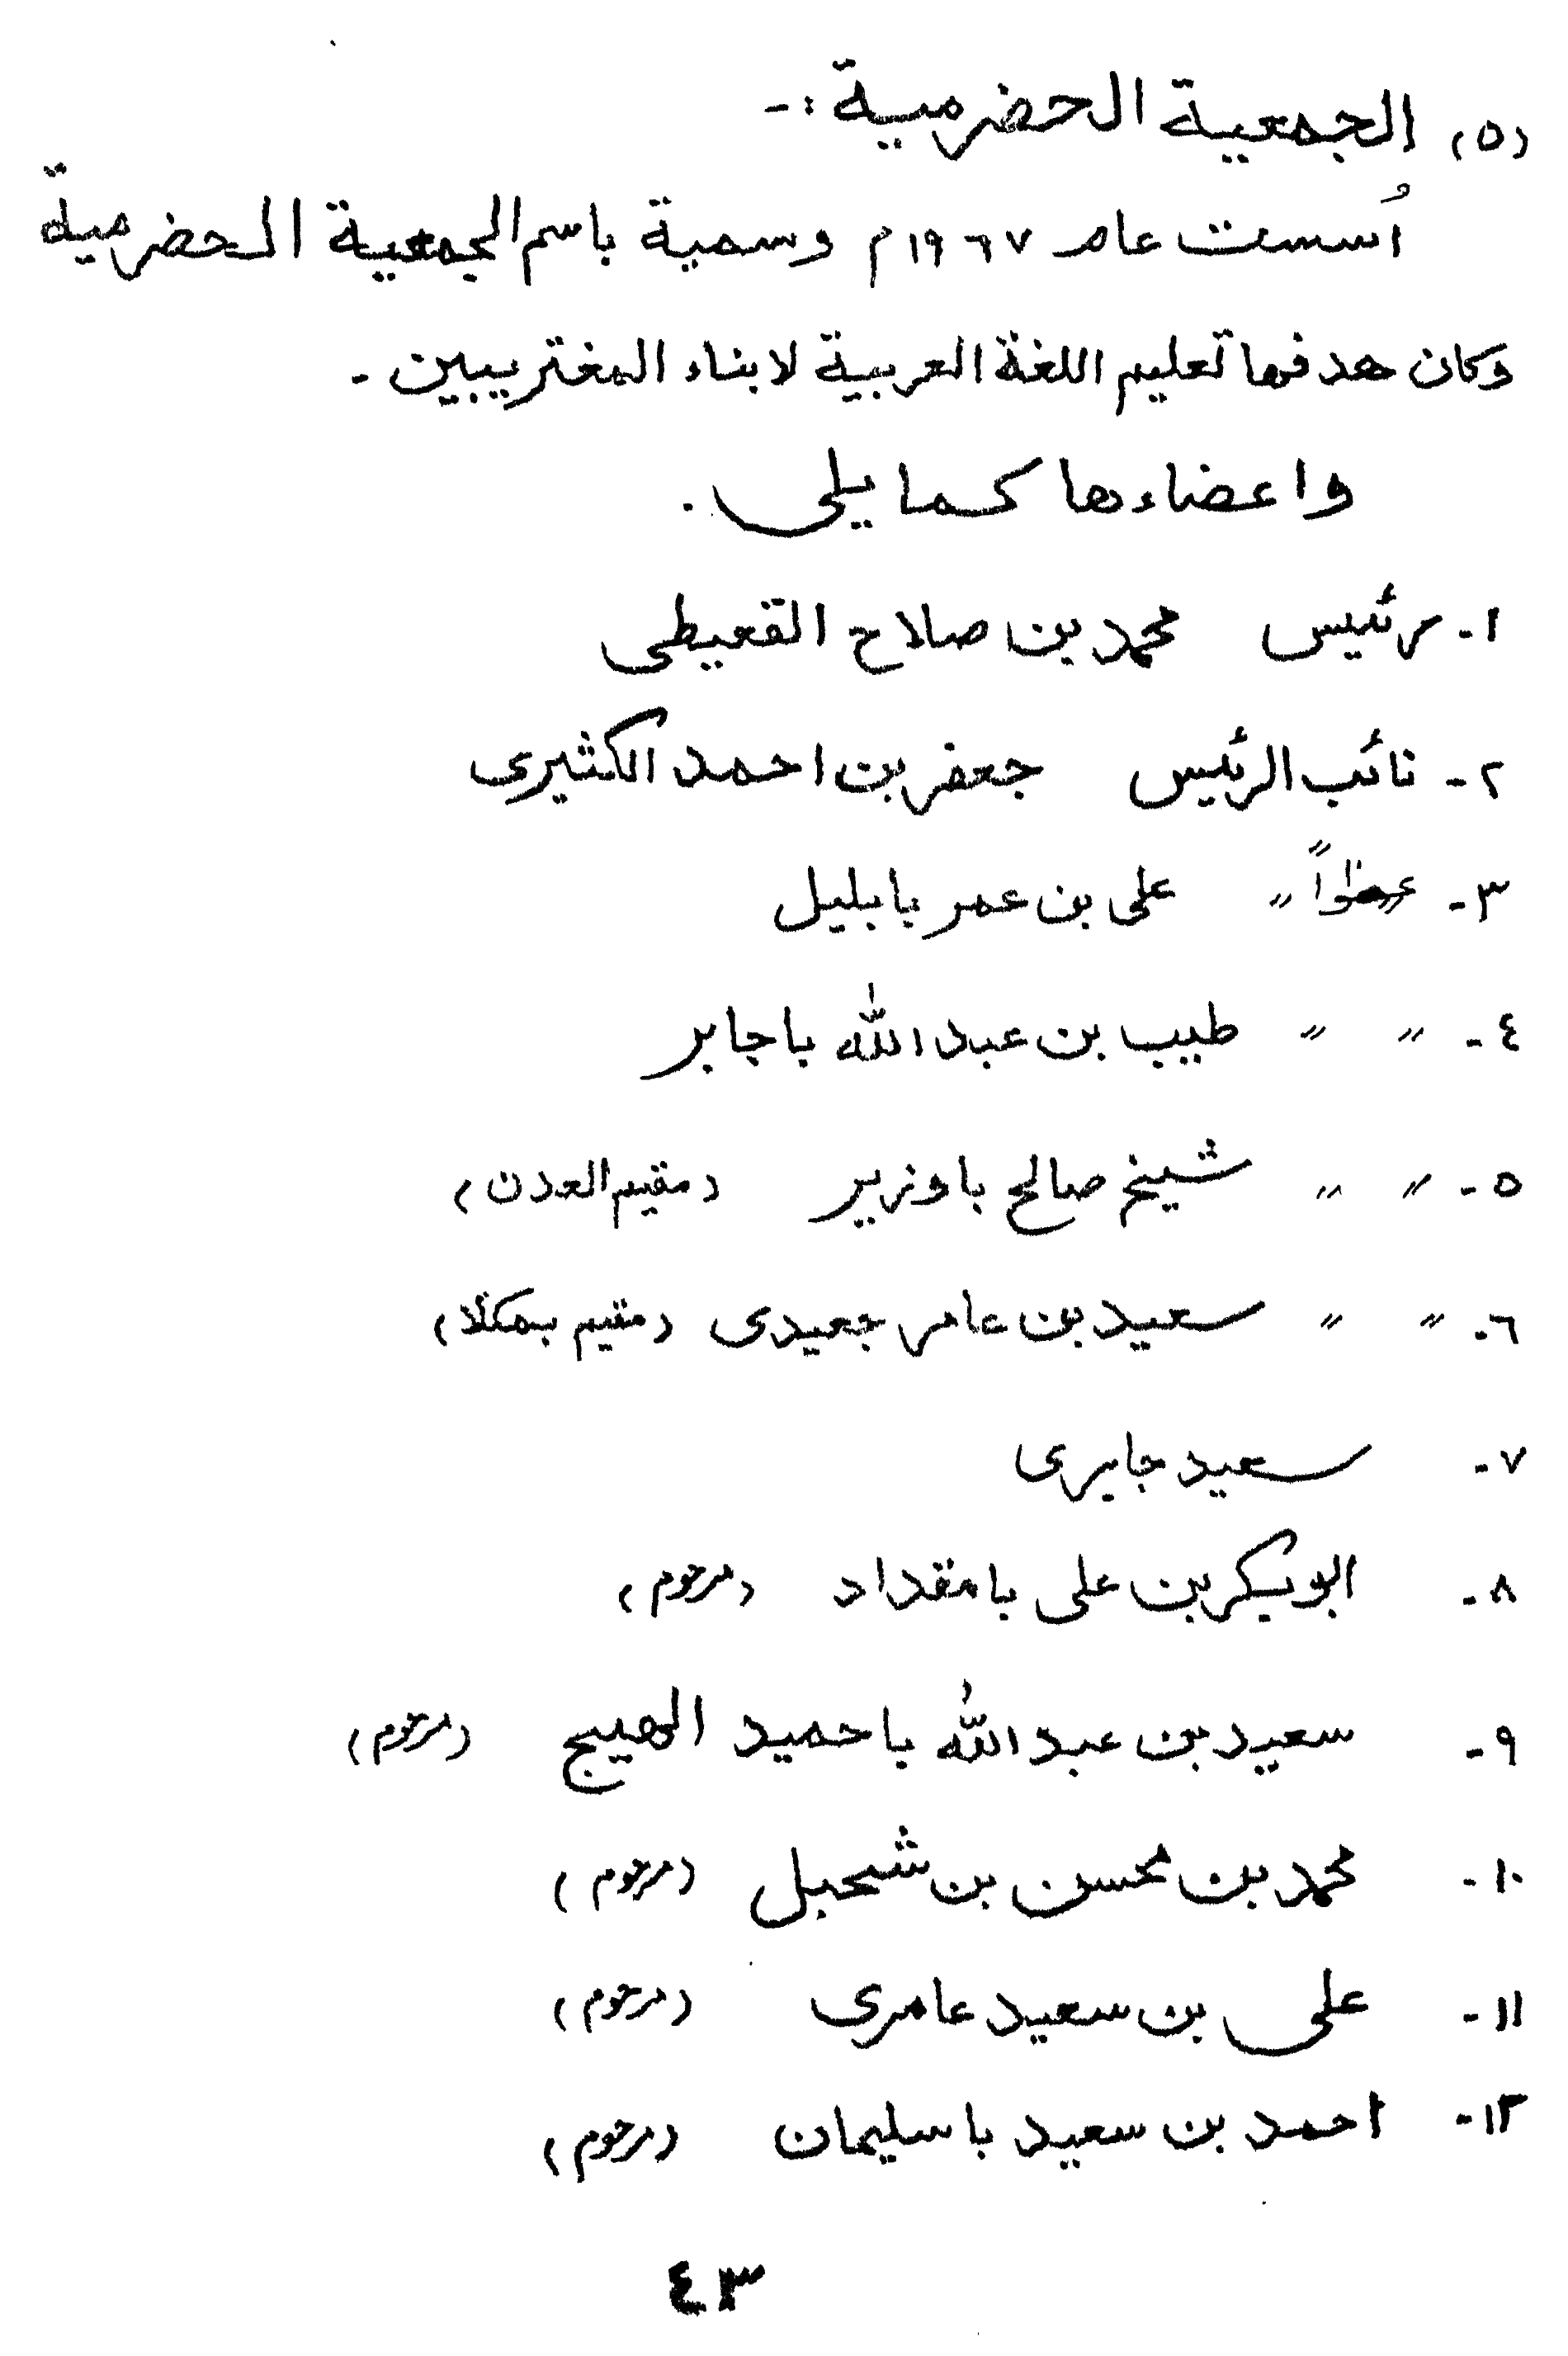 (٥) الجمعية الحضرمية :-
أُسست عام ١٩٦٧م وسمية باسم الجمعية الحضرمية
وكان هدفها تعليم اللغة العربية لابناء المغتربيين -
واعضاءها كما يلى .
١- رئيس محمد بن صلاح القعيطى
٢- نائب الرئيس جعفر بن احمد الكثيرى
٣- عضواً " على بن عمر بابليل
٤- " " طيب بن عبد الله باجابر
٥- " " شيخ صالح باوزير (مقيم العدن)
٦- " " سعيد بن عامر جعيدى (مقيم بمكلا)
٧- سعيد جابرى
٨- ابوبكر بن على بامقداد (مرحوم)
٩- سعيد بن عبد الله باحميد الهيج (مرحوم)
١٠- محمد بن محسن بن شحبل (مرحوم)
١١- على بن سعيد عامرى (مرحوم)
١٢- احمد بن سعيد باسليمان (مرحوم)
٤٣